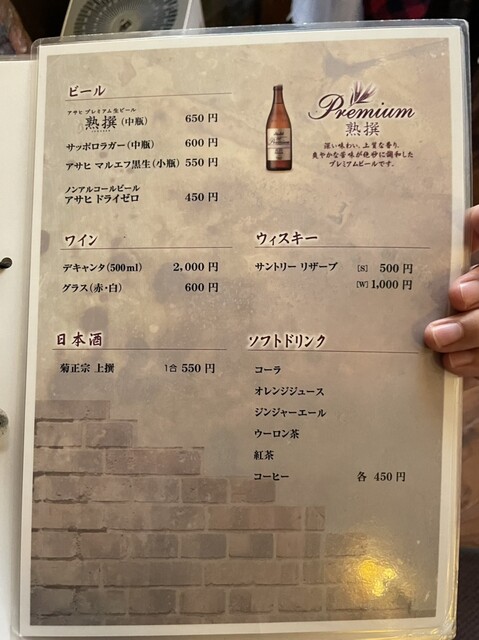 ビール
アサヒ プレミアム生ビール
熟撰(中瓶) 650 円
サッポロラガー(中瓶) 600 円
アサヒ マルエフ黒生(小瓶) 550 円
ノンアルコールビール
アサヒ ドライゼロ 450 円
Premium
熟撰
深い味わい、上質な香り、
爽やかな苦味が絶妙に調和した
プレミアムビールです。
ワイン
デキャンタ(500ml) 2,000 円
グラス(赤・白) 600 円
ウィスキー
サントリー リザーブ [S] 500 円
[W] 1,000 円
日本酒
菊正宗 上撰 1合 550 円
ソフトドリンク
コーラ
オレンジジュース
ジンジャーエール
ウーロン茶
紅茶
コーヒー 各 450 円